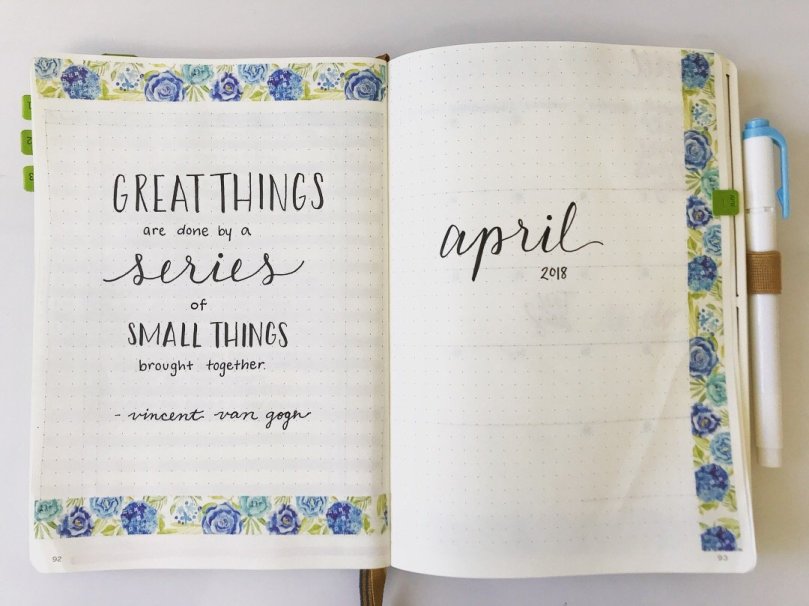 GREAT THINGS
are done by a
series
of
SMALL THINGS
brought together.
- vincent van gogh
92
april
2018
93